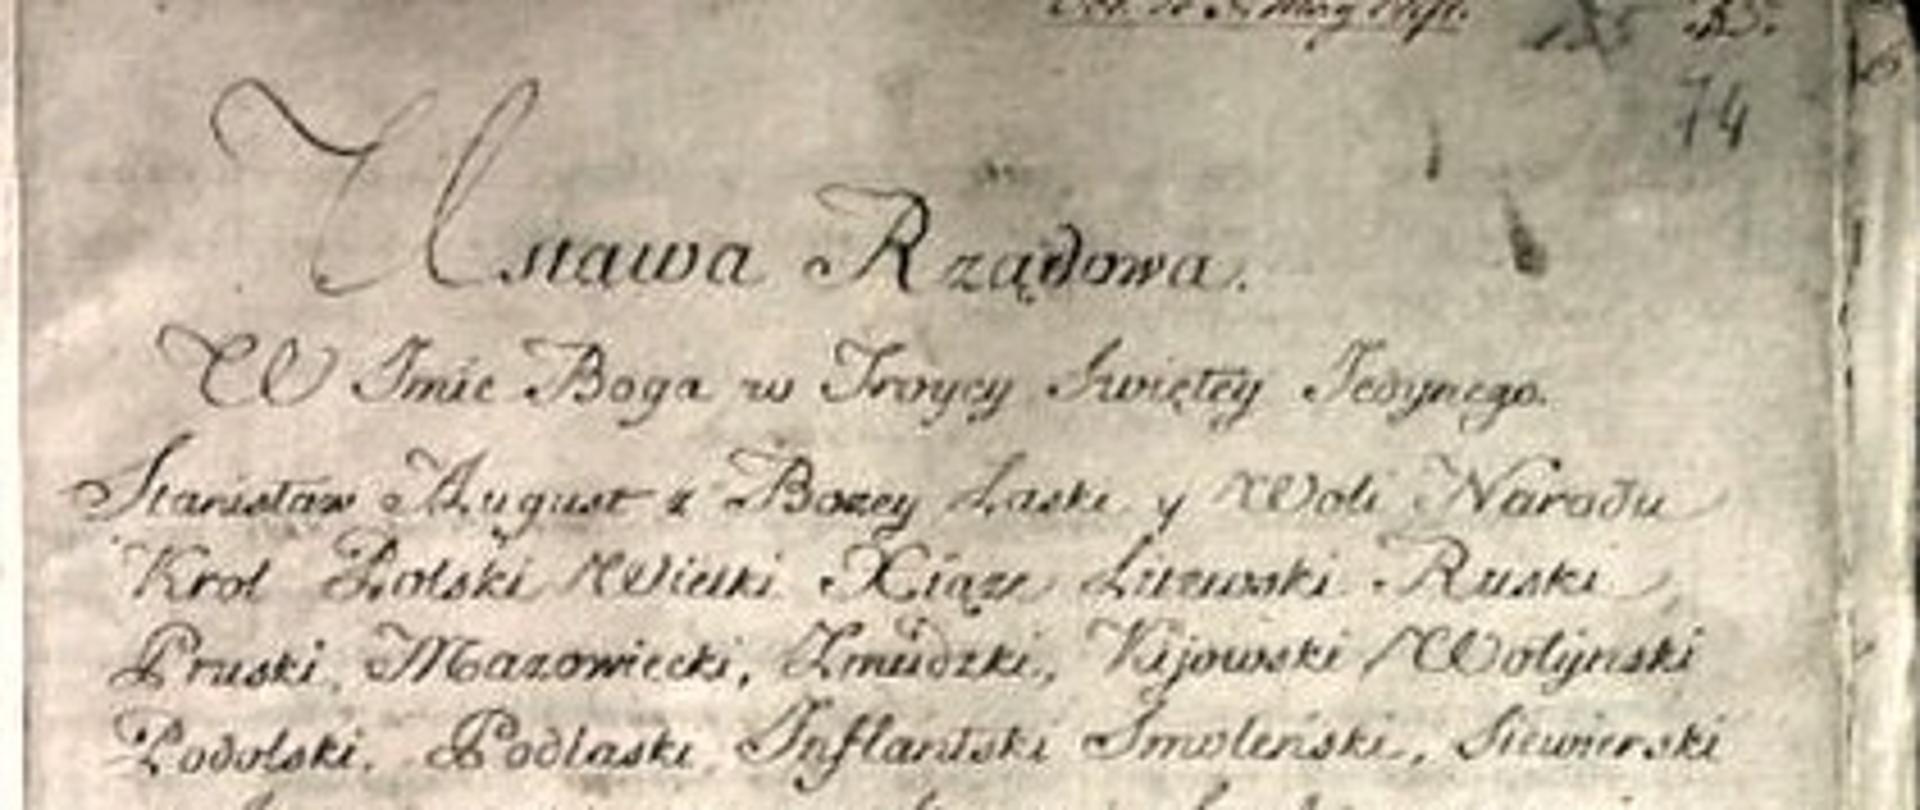 74
Ustawa Rządowa.
W Imie Boga w Troycy Swiętey Jedynego.
Stanisław August z Bozey Łaski y Woli Narodu
Krol Polski Wielki Xiąze Litewski Ruski
Pruski, Mazowiecki, Zmudzki, Kijowski Wołyński
Podolski, Podlaski Inflantski Smoleński, Siewierski